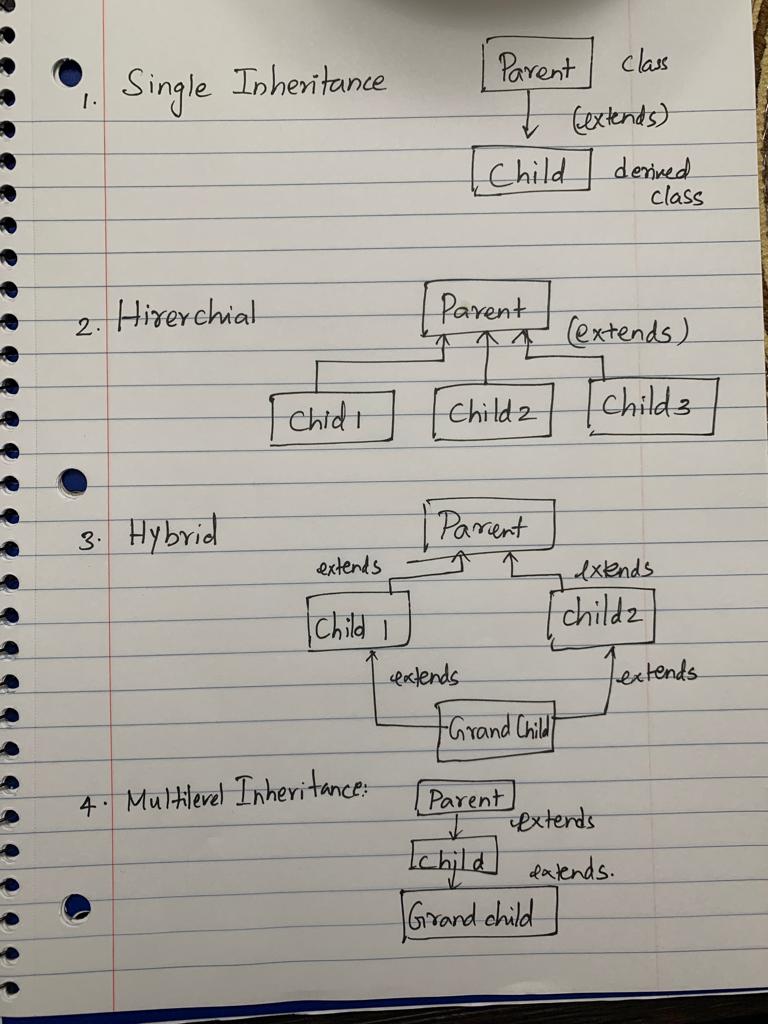 1. Single Inheritance
Parent class
(extends)
Child derived
class
2. Hirerchial
Parent
(extends)
Chid 1 Child 2 Child 3
3. Hybrid
Parient
extends extends
Child 1 child 2
extends extends
Grand Child
4. Multilevel Inheritance:
Parent
extends
child
extends.
Grand child